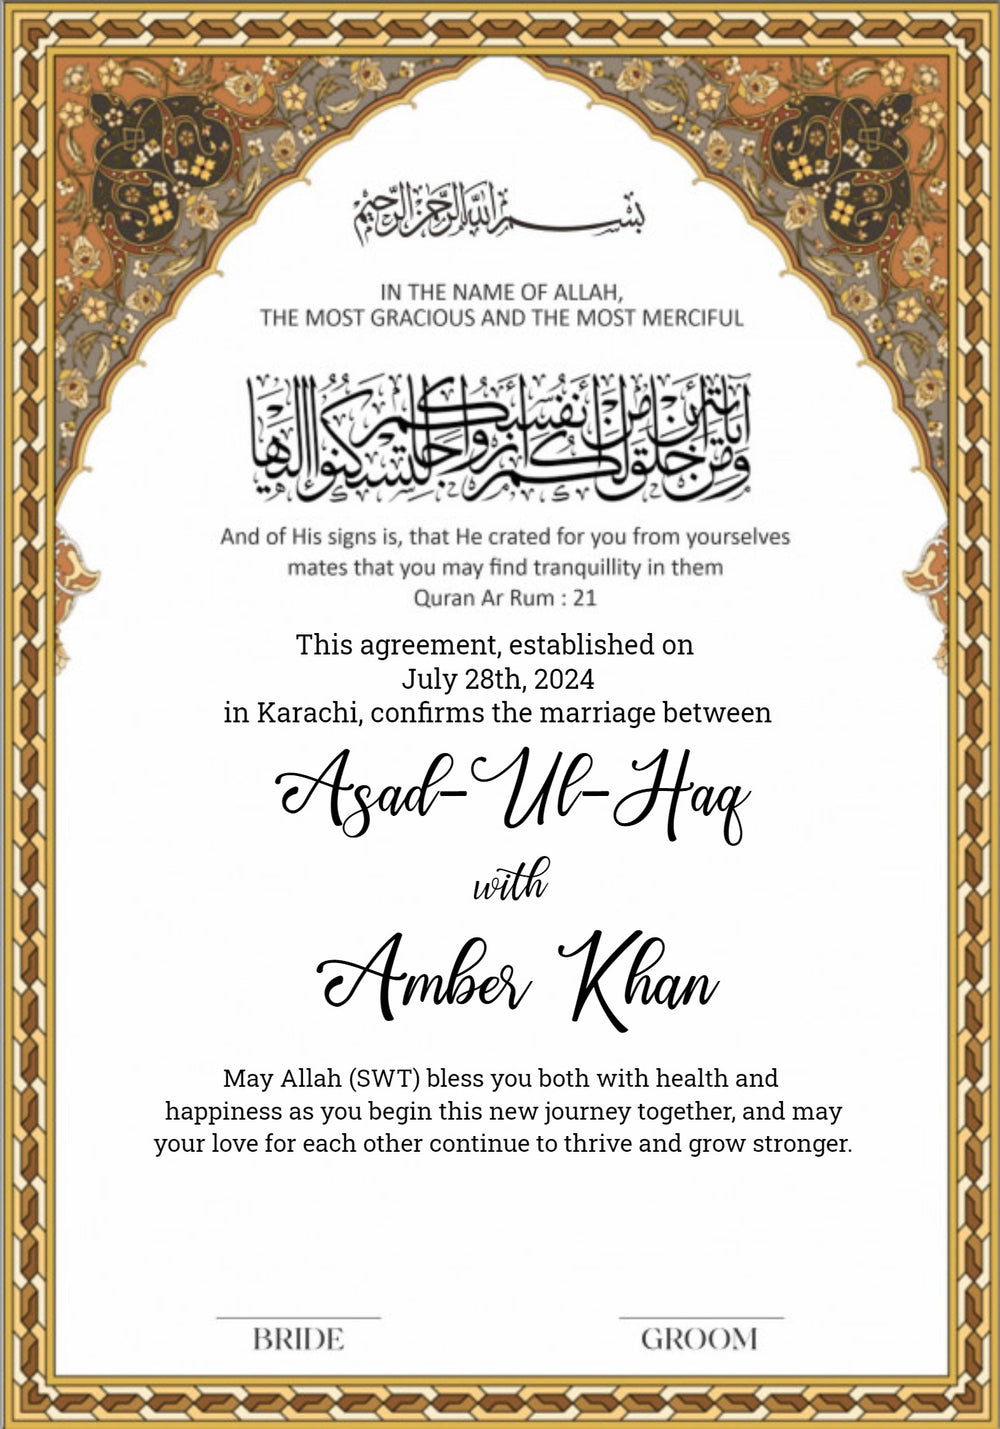 بسم الله الرحمن الرحيم
IN THE NAME OF ALLAH,
THE MOST GRACIOUS AND THE MOST MERCIFUL
ومن آياته أن خلق لكم من أنفسكم أزواجا لتسكنوا إليها
And of His signs is, that He crated for you from yourselves
mates that you may find tranquillity in them
Quran Ar Rum : 21
This agreement, established on
July 28th, 2024
in Karachi, confirms the marriage between
Asad-Ul-Haq
with
Amber Khan
May Allah (SWT) bless you both with health and
happiness as you begin this new journey together, and may
your love for each other continue to thrive and grow stronger.
BRIDE GROOM